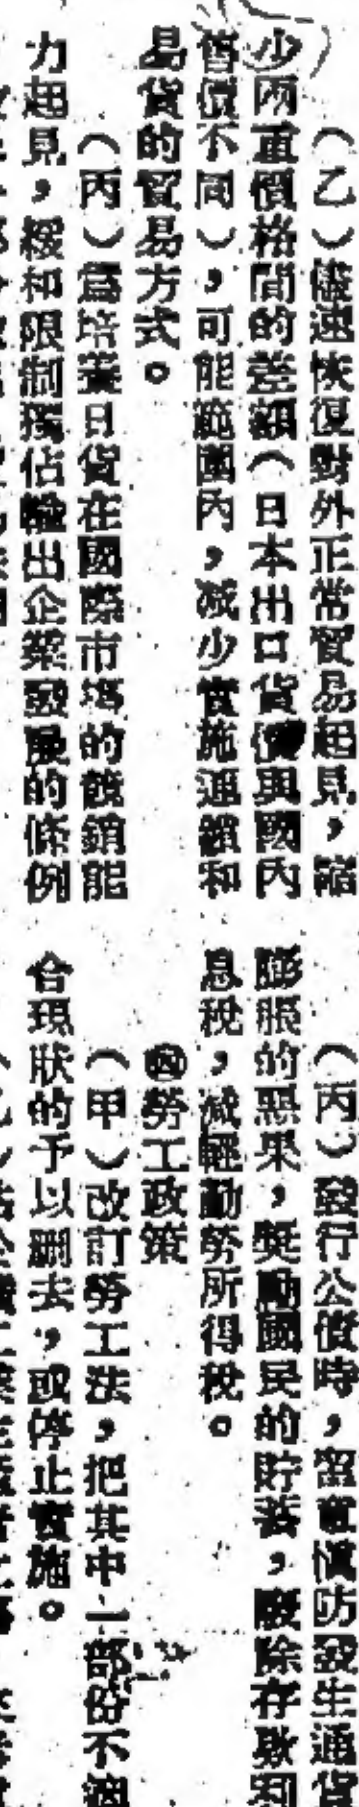 （乙）儘速恢復對外正常貿易起見，縮
少兩重價格間的差額（日本出口貨價與國內
售價不同），可能範圍內，減少實施連鎖和
易貨的貿易方式。
（丙）爲培養日貨在國際市場的競銷能
力起見，緩和限制獨佔輸出企業發展的條例
（丙）發行公債時，留意慎防發生通貨
膨脹的惡果，獎勵國民的貯蓄，廢除存款利
息稅，減輕勤勞所得稅。
㊃勞工政策
（甲）改訂勞工法，把其中一部份不適
合現狀的予以刪去，或停止實施。